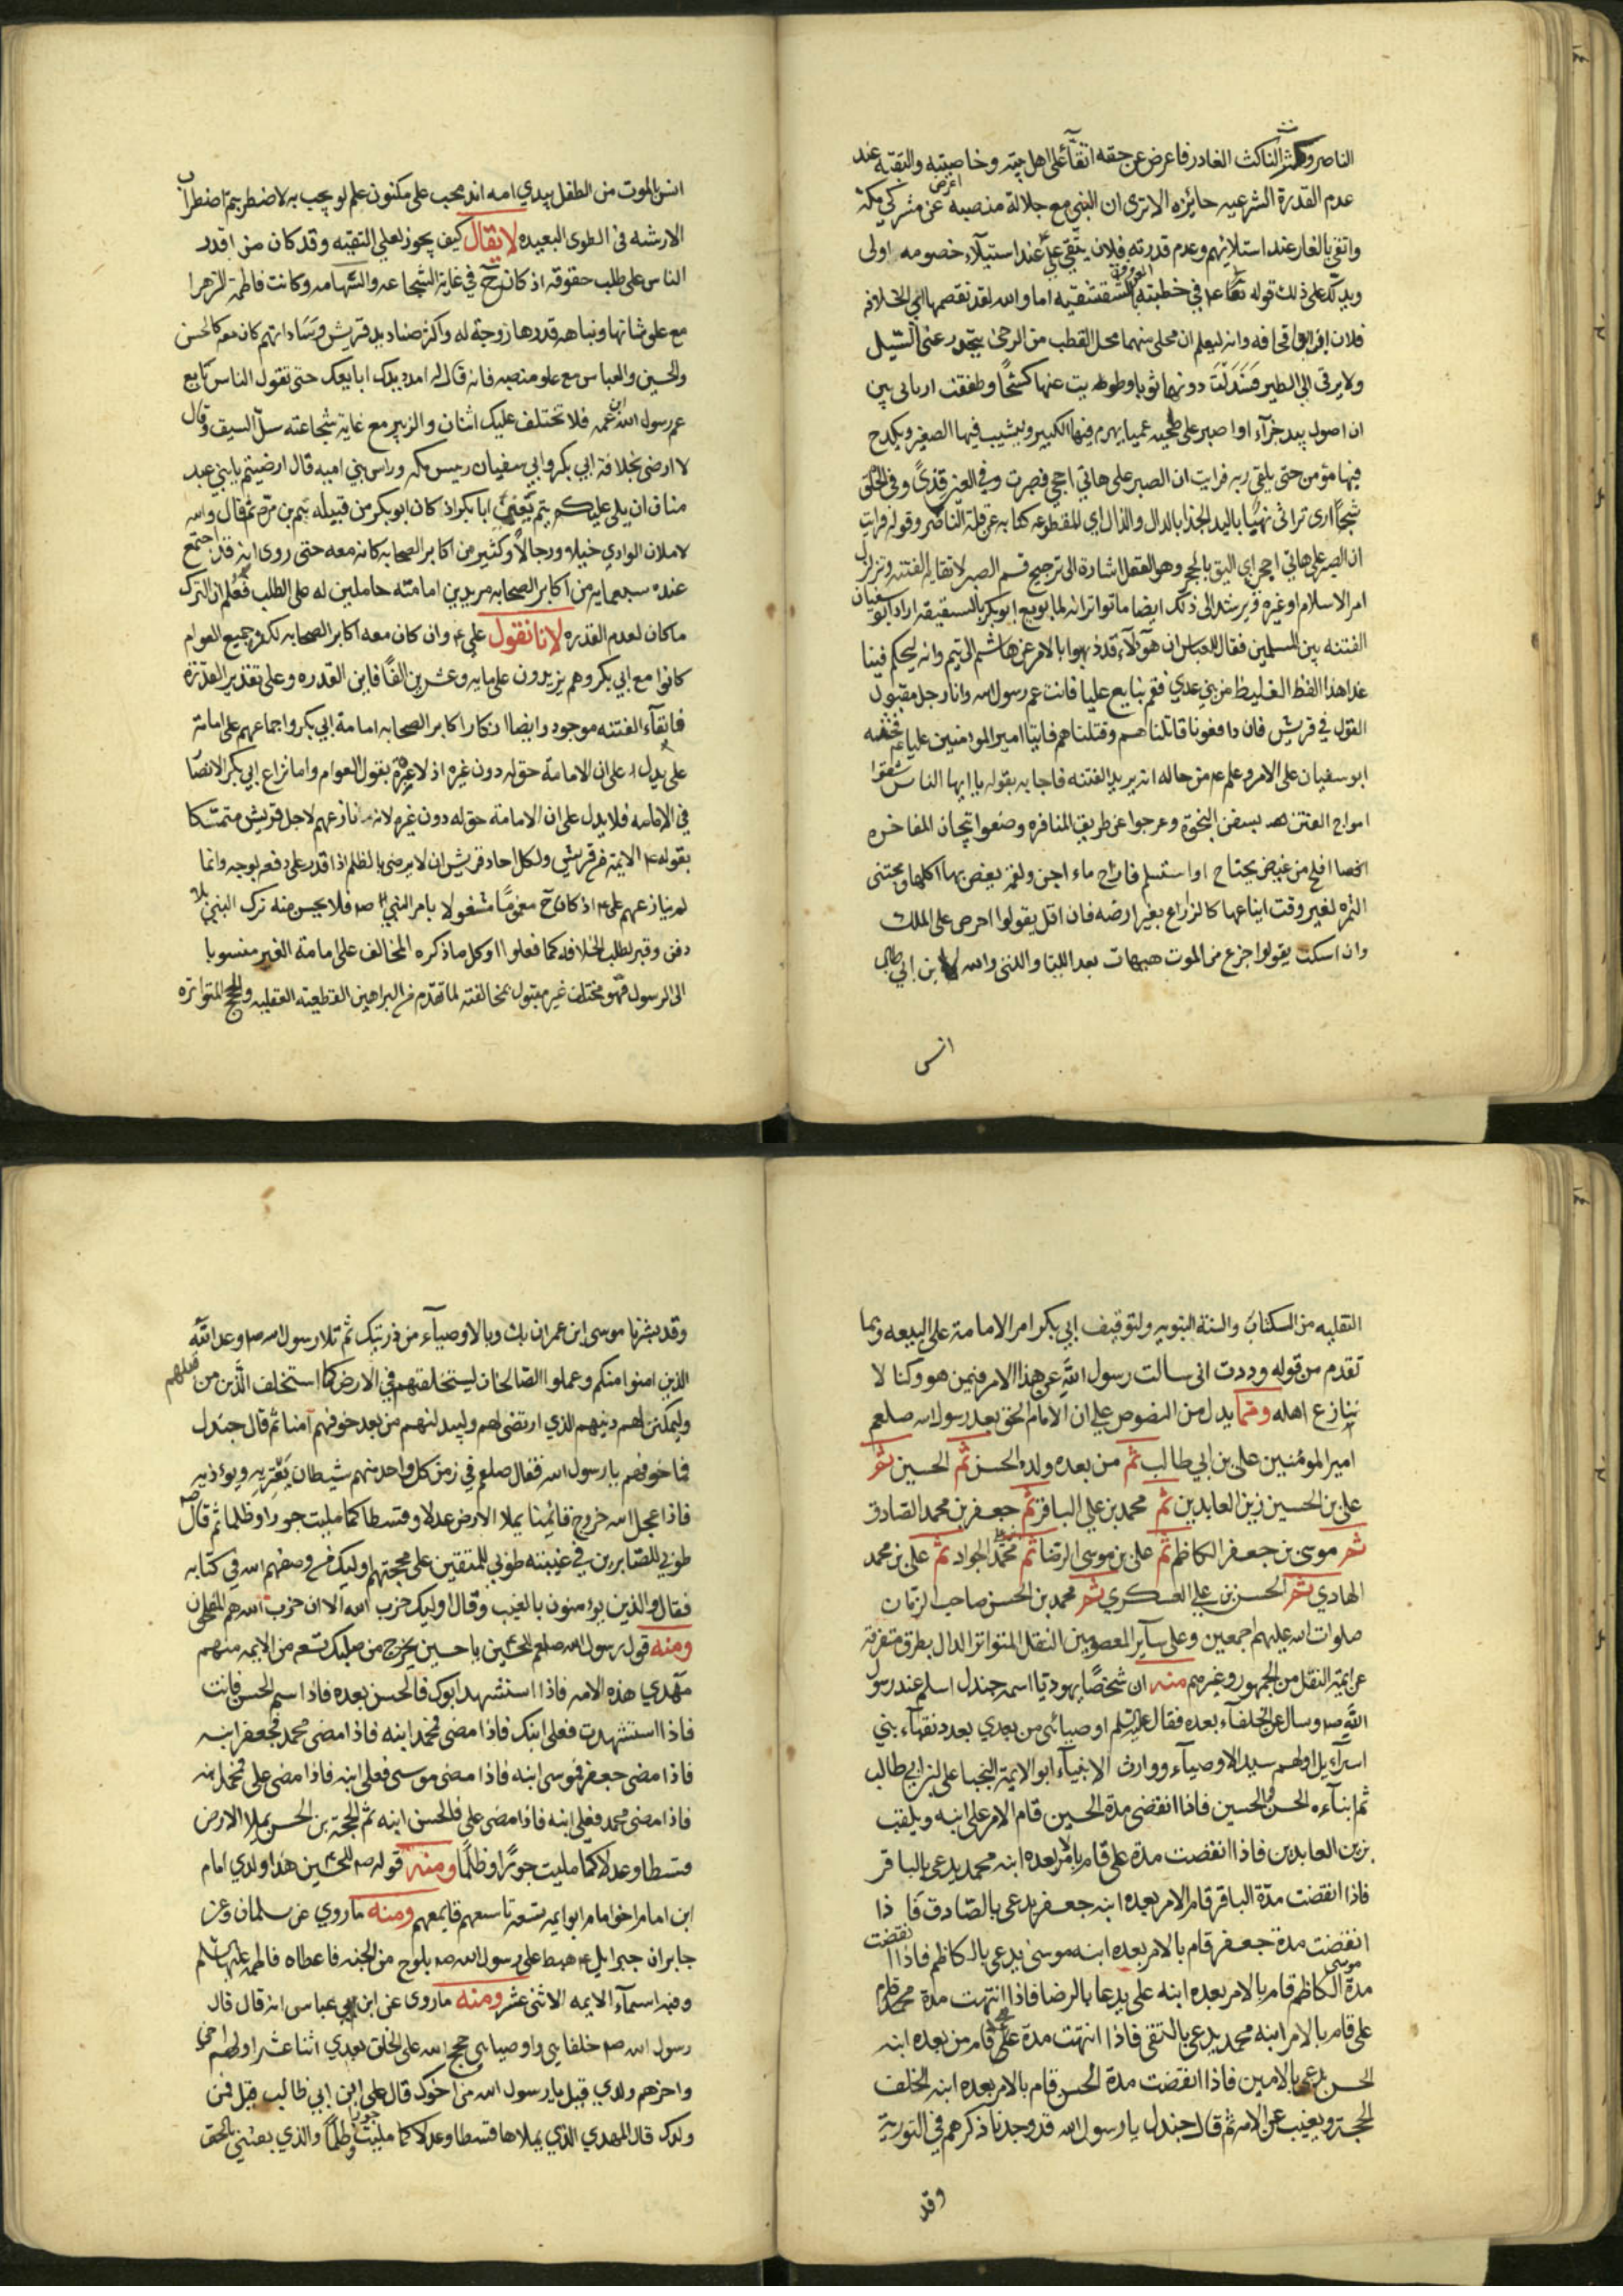 الناصر وكثر الناكث الغادر فاعرض عن حقه اتقآء على اهل بيته وخاصيته والتقيه عند
عدم القدرة الشرعيه جائزه الا ترى ان النبي مع جلالة منصبه اعرض عن مشركي مكة
واتقى بالغار عند استيلائهم وعدم قدرته فلان يتقي علي عند استيلآء خصومه اولى
ويدلك على ذلك قوله في خطبته الشقشقيه اما والله لقد تقمصها ابي الخلافه
فلان ابن ابي قحافه وانه ليعلم ان محلى منهما محل القطب من الرحى ينحدر عنى السيل
ولا يرقى الي الطير فسدلت دونها ثوبا وطويت عنها كشحًا وطفقت ارتاى بين
ان اصول بيد جزآء او اصبر على طخيه عميا يهرم فيها الكبير ويشيب فيها الصغير ويكدح
فيها مؤمن حتى يلقى ربه فرايت ان الصبر على هاتي احجى فصبرت وفي العين قذىً وفي الحلق
شجًا ارى تراثى نهبًا باليد الجذا بالدال والذال اي المقطوعه كنايه عن قلة الناصر وقوله فرايت
ان الصبر على هاتي احجى اي اليق بالحجى وهو العقل اشارة الى ترجيح قسم الصبر لاتقايه الفتنه وتزلزل
امر الاسلام او غيره ويرشد الى ذلك ايضا ما تواتر انه لما بويع ابو بكر بالسقيفه اراد ابو سفيان
الفتنه بين المسلمين فقال للعباس ان هولآء قد ذهبوا بالامر عن هاشم الى تيم وانه ليحكم فينا
غدا هذا الفظ الغليظ من بني عدي فقم نبايع عليا فانت عم رسول الله وانا رجل مقبول
القول في قريش فان دافعونا قاتلناهم وقتلناهم فاتيا امير المومنين عليا ع فخضه
ابو سفيان على الامر وعلم ع من حاله انه يريد الفتنه فاجابه بقوله يا ايها الناس شقوا
امواج الفتن بسفن النجوة وعرجوا عن طريق المنافره وضعوا تيجان المفاخره
افلح من نهض بجناح او استسلم فاراح ماء اجن ولقمه يغص بها اكلها ومجتنى
الثمره لغير وقت ايناعها كالزارع بغير ارضه فان اقل يقولوا احرص على الملك
وان اسكت يقولوا جزع من الموت هيهات بعد اللتيا والتى والله لابن ابي طالب
انس
انس بالموت من الطفل بيدي امه اندمجت على مكنون علم لو بجت به لاضطربتم اضطراب
الارشيه في الطوى البعيده لا يقال كيف يجوز لعلي التقيه وقد كان من اقدر
الناس على طلب حقوقه اذ كان ح في غاية الشجاعه والشهامه وكانت فاطمة الزهرا
مع على شانها ونباهه قدرها زوجة له واكثر صناديد قريش وساداتهم كان معه كالحسن
والحسين والعباس مع علو منصبه فانه قال له امدد يدك ابايعك حتى تقول الناس بايع
عم رسول الله ابن عمه فلا تختلف عليك اثنان والزبير مع غايه شجاعته سل السيف وقال
لا ارضى بخلافة ابي بكر وابي سفيان رييس مكه وراس بني اميه قال ارضيتم يا بني عبد
مناف ان يلي عليكم تيم يعني ابا بكر اذ كان ابو بكر من قبيله تيم بن مره ثم قال والله
لاملان الوادي خيلا ورجالًا وكثير من اكابر الصحابه كانه معه حتى روى انه قد اجتمع
عنده سبعمايه من اكابر الصحابه مريدين امامته حاملين له على الطلب فعلم ان الترك
ما كان لعدم القدره لانا نقول علي ع وان كان معه اكابر الصحابه لكن جميع العوام
كانوا مع ابي بكر وهم يزيدون على مايه وعشرين الفًا فاين القدره وعلى تقدير القدرة
فاتقآء الفتنه موجود وايضا انكار اكابر الصحابه امامة ابي بكر واجماعهم على امامة
علي يدل على ان الامامة حق له دون غيره اذ لا عبره بقول العوام واما نزاع ابي بكر الانصار
في الامامه فلا يدل على ان الامامة حق له دون غيره لانه نازعهم لاجل قريش متمسكا
بقوله ع الايمة من قريش ولكل احاد قريش ان لا يرضى بالظلم اذا قدر على دفعه بوجه وانما
لم ينازعهم علي ع اذ كان ح مغمومًا مشغولا بامر النبي ص فلا يحسن منه ترك النبي بلا
دفن وقبر لطلب الخلافه كما فعلوا وكل ما ذكره المخالف على امامة الغير منسوبا
الى الرسول فهو مختلف غير مقبول بمخالفته لما تقدم من البراهين القطعية العقليه والحجج المتواتره
النقليه من الكتاب والسنة النبويه ولتوقيف ابي بكر امر الامامة على البيعه وبما
تقدم من قوله وددت انى سالت رسول الله عن هذا الامر فيمن هو وكنا لا
ننازع اهله ومما يدل من النصوص على ان الامام الحق بعد رسول الله صلعم
امير المومنين على بن ابي طالب ثم من بعده ولده الحسن ثم الحسين ثم
على بن الحسين زين العابدين ثم محمد بن علي الباقر ثم جعفر بن محمد الصادق
ثم موسى بن جعفر الكاظم ثم على بن موسى الرضا ثم محمد الجواد ثم على بن محمد
الهادي ثم الحسن بن علي العسكري ثم محمد بن الحسن صاحب الزمان
صلوات الله عليهم اجمعين وعلى سآير المعصومين النقل المتواتر الدال بطرق متفرقة
عن ايمة النقل من الجمهور وغيرهم منه ان شخصًا يهوديا اسمه جندل اسلم عند رسول
الله ص وسال عن الخلفآء بعده فقال عليه السلم اوصيائى من بعدي بعدد نقبآء بني
اسرآءيل اولهم سيد الاوصيآء ووارث الانبيآء ابو الايمة النجبا على بن ابي طالب
ثم ابنآءه الحسن والحسين فاذا انقضى مدة الحسين قام الامر على ابنه ويلقب
بزين العابدين فاذا انقضت مدة على قام بالامر بعده ابنه محمد يدعى بالباقر
فاذا انقضت مدة الباقر قام الامر بعده ابنه جعفر يدعى بالصادق فاذا
انقضت مدة جعفر قام بالامر بعده ابنه موسى يدعى بالكاظم فاذا انقضت
مدة موسى الكاظم قام بالامر بعده ابنه على يدعا بالرضا فاذا انتهت مدة
على قام بالامر ابنه محمد يدعى بالتقى فاذا انتهت مدة قام من بعده ابنه
الحسن يدعى بالامين فاذا انقضت مدة الحسن قام بالامر بعده ابنه الخلف
الحجة ويغيب عن الامه ثم قال جندل يا رسول الله قد وجدنا ذكرهم في التورية
وقد
وقد بشرنا موسى ابن عمران بك وبالاوصيآء من ذريتك ثم تلا رسول الله ص وعد الله
الذين امنوا منكم وعملوا الصالحات ليستخلفنهم في الارض كما استخلف الذين من قبلهم
وليمكنن لهم دينهم الذي ارتضى لهم وليبدلنهم من بعد خوفهم آمنا ثم قال جندل
فما خوفهم يا رسول الله فقال صلعم في زمن كل واحد منهم شيطان يعتريه ويوذيه
فاذا عجل الله خروج قائمنا يملا الارض عدلا وقسطا كما مليت جورا وظلما ثم قال ص
طوبي للصابرين في غيبته طوبي للمتقين على محجتهم اوليك من وصفهم الله في كتابه
فقال والذين يومنون بالغيب وقال اوليك حزب الله الا ان حزب الله هم المفلحون
ومنه قول رسول الله صلعم للحسين يا حسين يخرج من صلبك تسعه من الايمه منهم
مهدي هذه الامه فاذا استشهد ابوك فالحسن بعده فاذا سم الحسن فانت
فاذا استشهدت فعلي ابنك فاذا مضى فمحمد ابنه فاذا مضى محمد فجعفر ابنه
فاذا مضى جعفر فموسى ابنه فاذا مضى موسى فعلى ابنه فاذا مضى على فمحمد ابنه
فاذا مضى محمد فعلي ابنه فاذا مضى على فالحسن ابنه ثم الحجة بن الحسن يملا الارض
قسطا وعدلا كما مليت جورًا وظلمًا ومنه قوله ص للحسين هذا ولدي امام
ابن امام اخو امام ابو ايمه تسعه تاسعهم قايمهم ومنه ما روي عن سلمان وعن
جابر ان جبرايل ع هبط على رسول الله ص بلوح من الجنه فاعطاه فاطمه عليها السلم
وفيه اسمآء الايمه الاثنى عشر ومنه ما روى عن ابن عباس انه قال قال
رسول الله ص خلفايى واوصيايي حجج الله على الخلق بعدي اثنا عشر اولهم اخي
واخرهم ولدي قيل يا رسول الله من اخوك قال على ابن ابي طالب قيل فمن
ولدك قال المهدي الذي يملاها قسطا وعدلا كما مليت جورا وظلمًا والذي بعثني بالحق